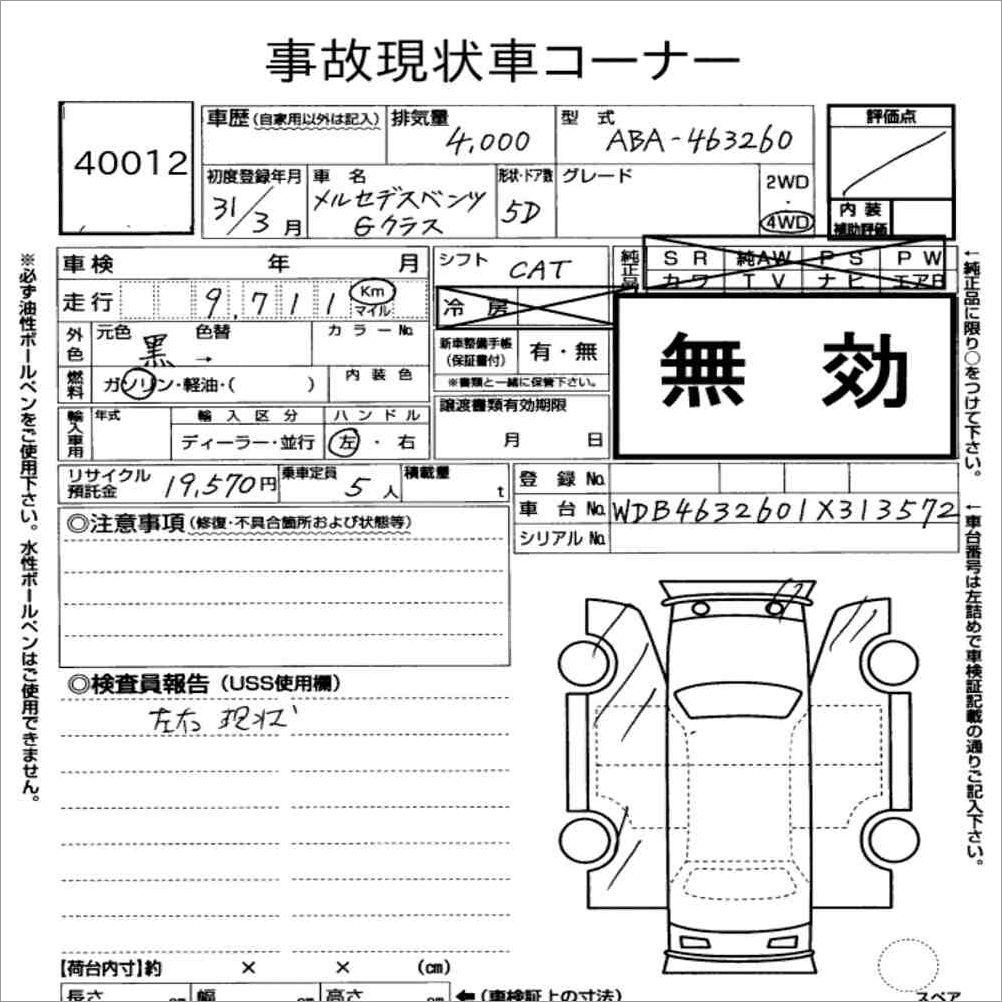 事故現状車コーナー
40012
車歴(自家用以外は記入) 排気量 4,000 型 式 ABA-463260 評価点
初度登録年月 31/3月 車 名 メルセデスベンツ Gクラス 形状・ドア数 5D グレード 2WD・4WD
内 装
補助評価
車検 年 月 シフト CAT 純正品 SR 純AW PS PW
カワ TV ナビ エアB
走行 9,711 Km マイル 冷 房
無 効
外色 元色 黒 色替 → カラーNo. 新車整備手帳(保証書付) 有・無
※書類と一緒に保管下さい。
燃料 ガソリン・軽油・( ) 内装色
譲渡書類有効期限
月 日
輸入車用 年式 輸入区分 ハンドル
ディーラー・並行 左・右
リサイクル預託金 19,570円 乗車定員 5人 積載量 t
登録 No.
車台 No. WDB4632601X313572
シリアル No.
◎注意事項(修復・不具合箇所および状態等)
◎検査員報告(USS使用欄)
左右 現状
【荷台内寸】約 × × (cm)
長さ cm 幅 cm 高さ cm ←(車検証上の寸法)
スペア
※必ず油性ボールペンをご使用下さい。水性ボールペンはご使用できません。
←純正品に限り○をつけて下さい。
←車台番号は左詰めで車検証記載の通りご記入下さい。